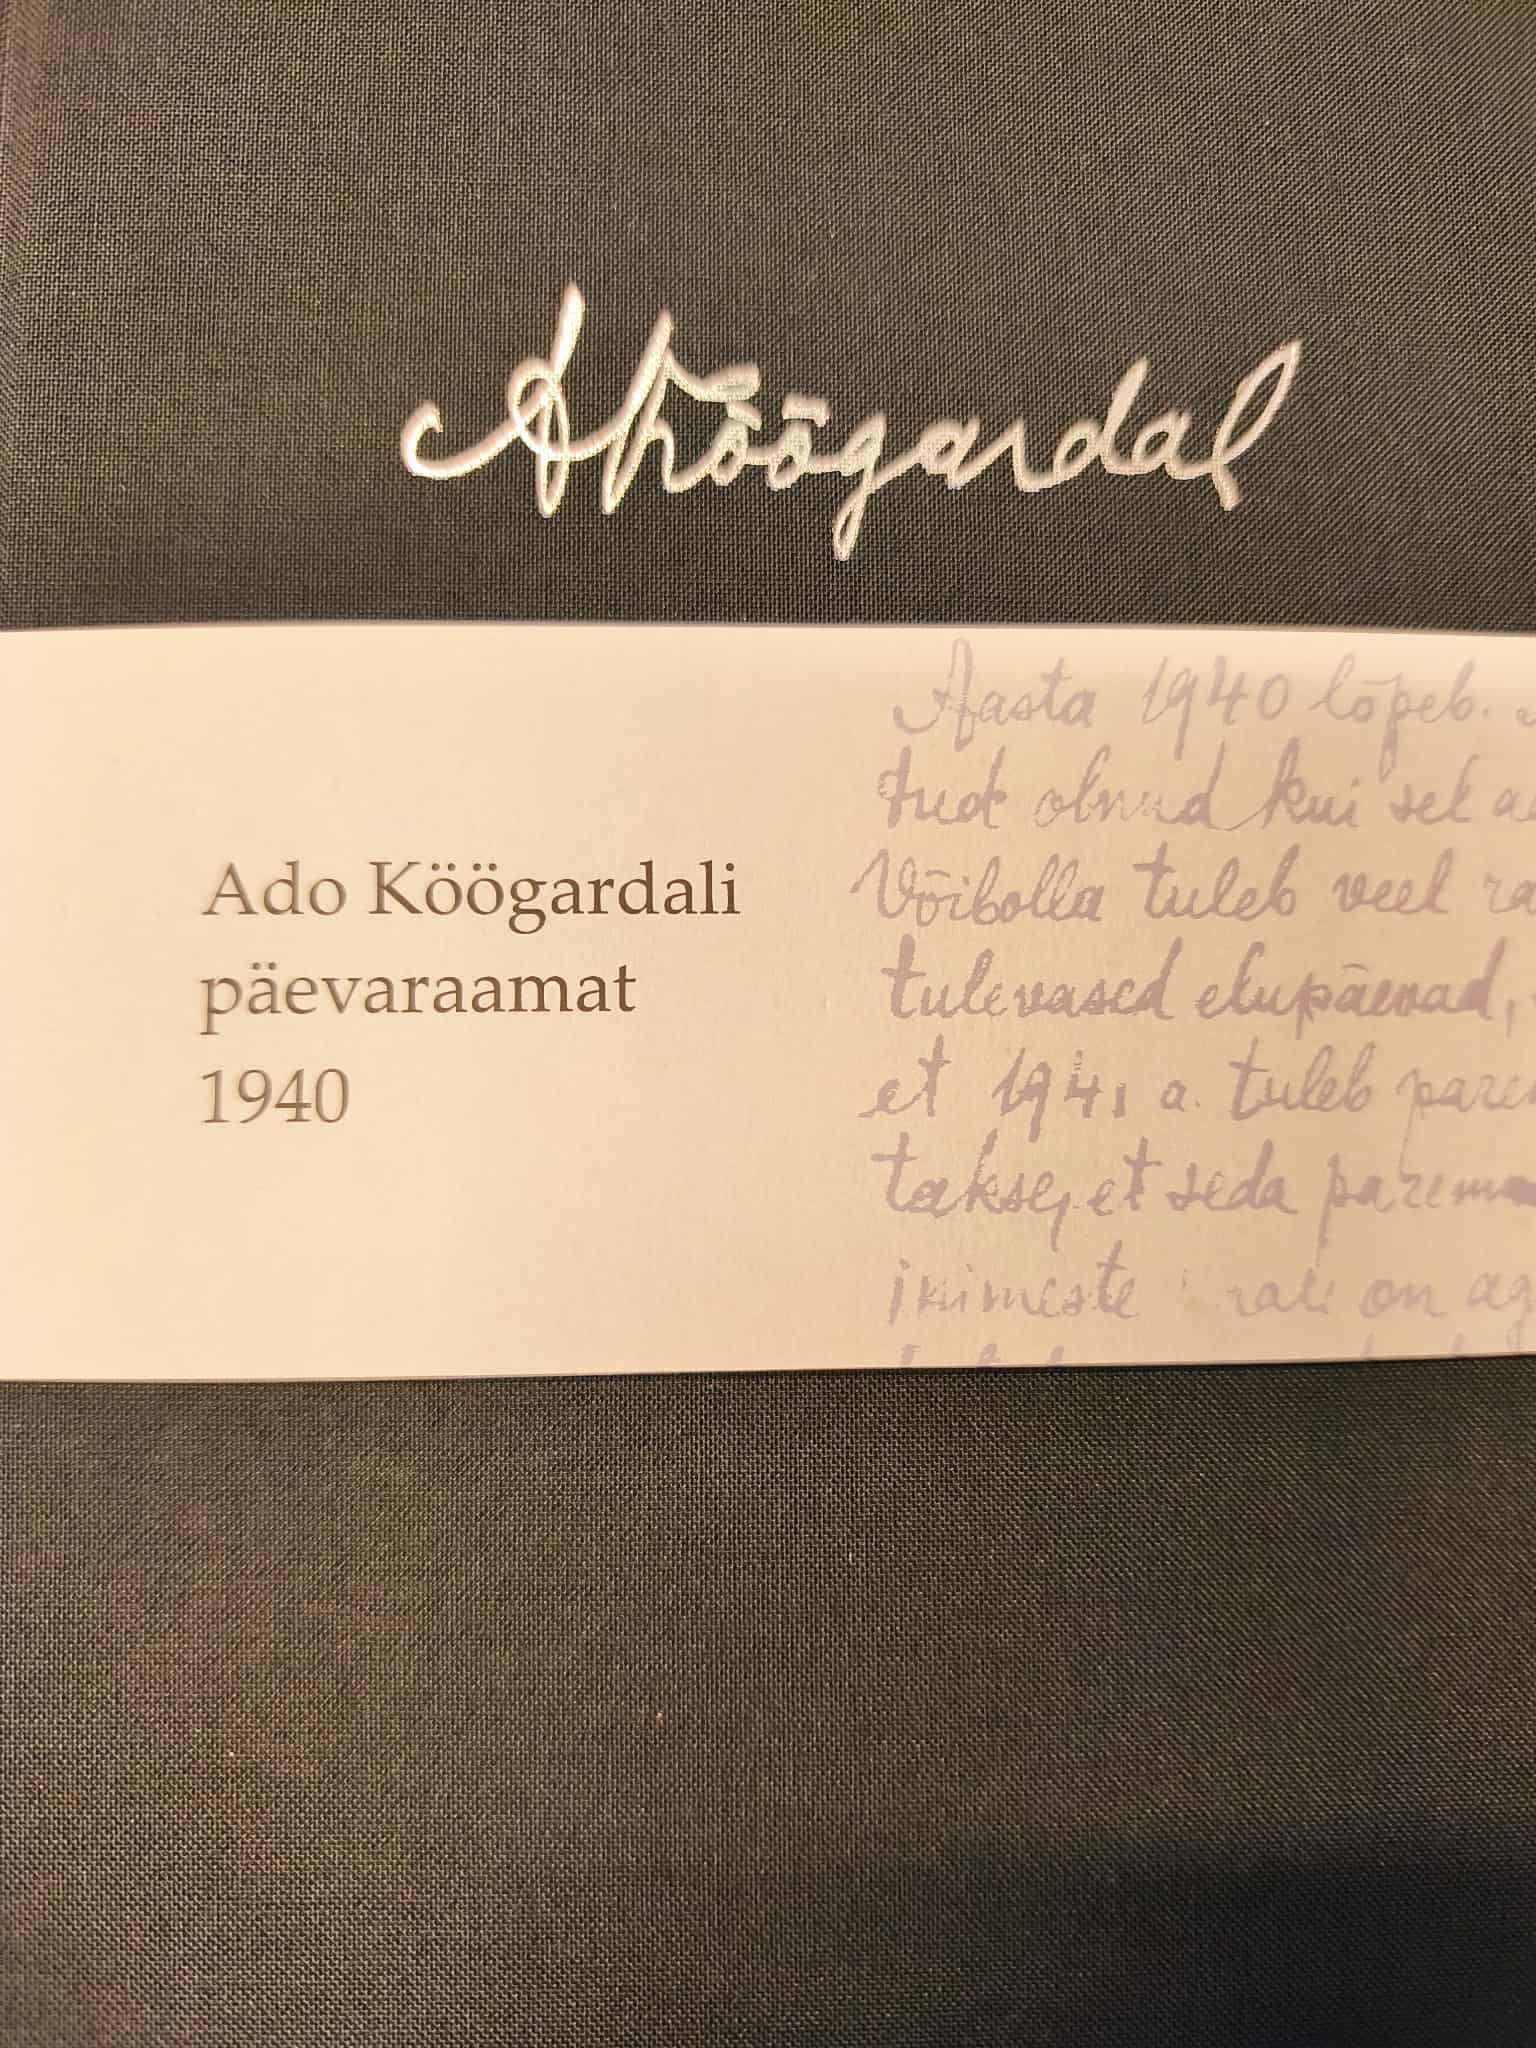 AKöögardal
Ado Köögardali
päevaraamat
1940
Aasta 1940 lõpeb.
tud olnud kui sel
Võibolla tuleb veel
tulevased elupäevad,
et 1941 a. tuleb
takse, et seda
inimeste on